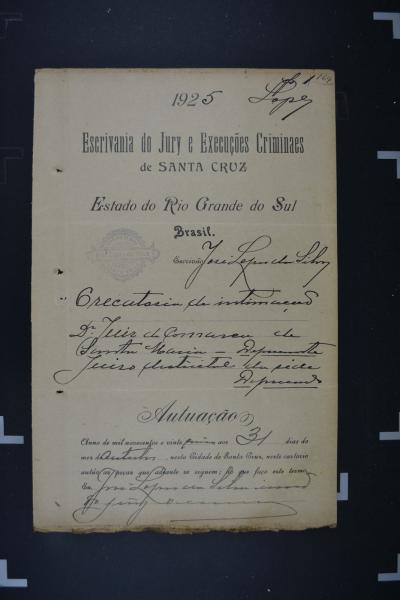 1925
Lopes
164
Escrivania do Jury e Execuções Criminaes
de SANTA CRUZ
Estado do Rio Grande do Sul
Brasil.
Escrivão José Lopes da Silva
Precatoria de intimação
Dr. Juiz de Comarca de
Santa Maria — Deprecante
Juizo districtal da séde
Deprecado
Autuação
Anno de mil novecentos e vinte aos 31 dias do
mez de Outubro, nesta Cidade de Santa Cruz, neste cartorio
autúo as peças que adeante se seguem; do que faço este termo.
Eu, José Lopes da Silva